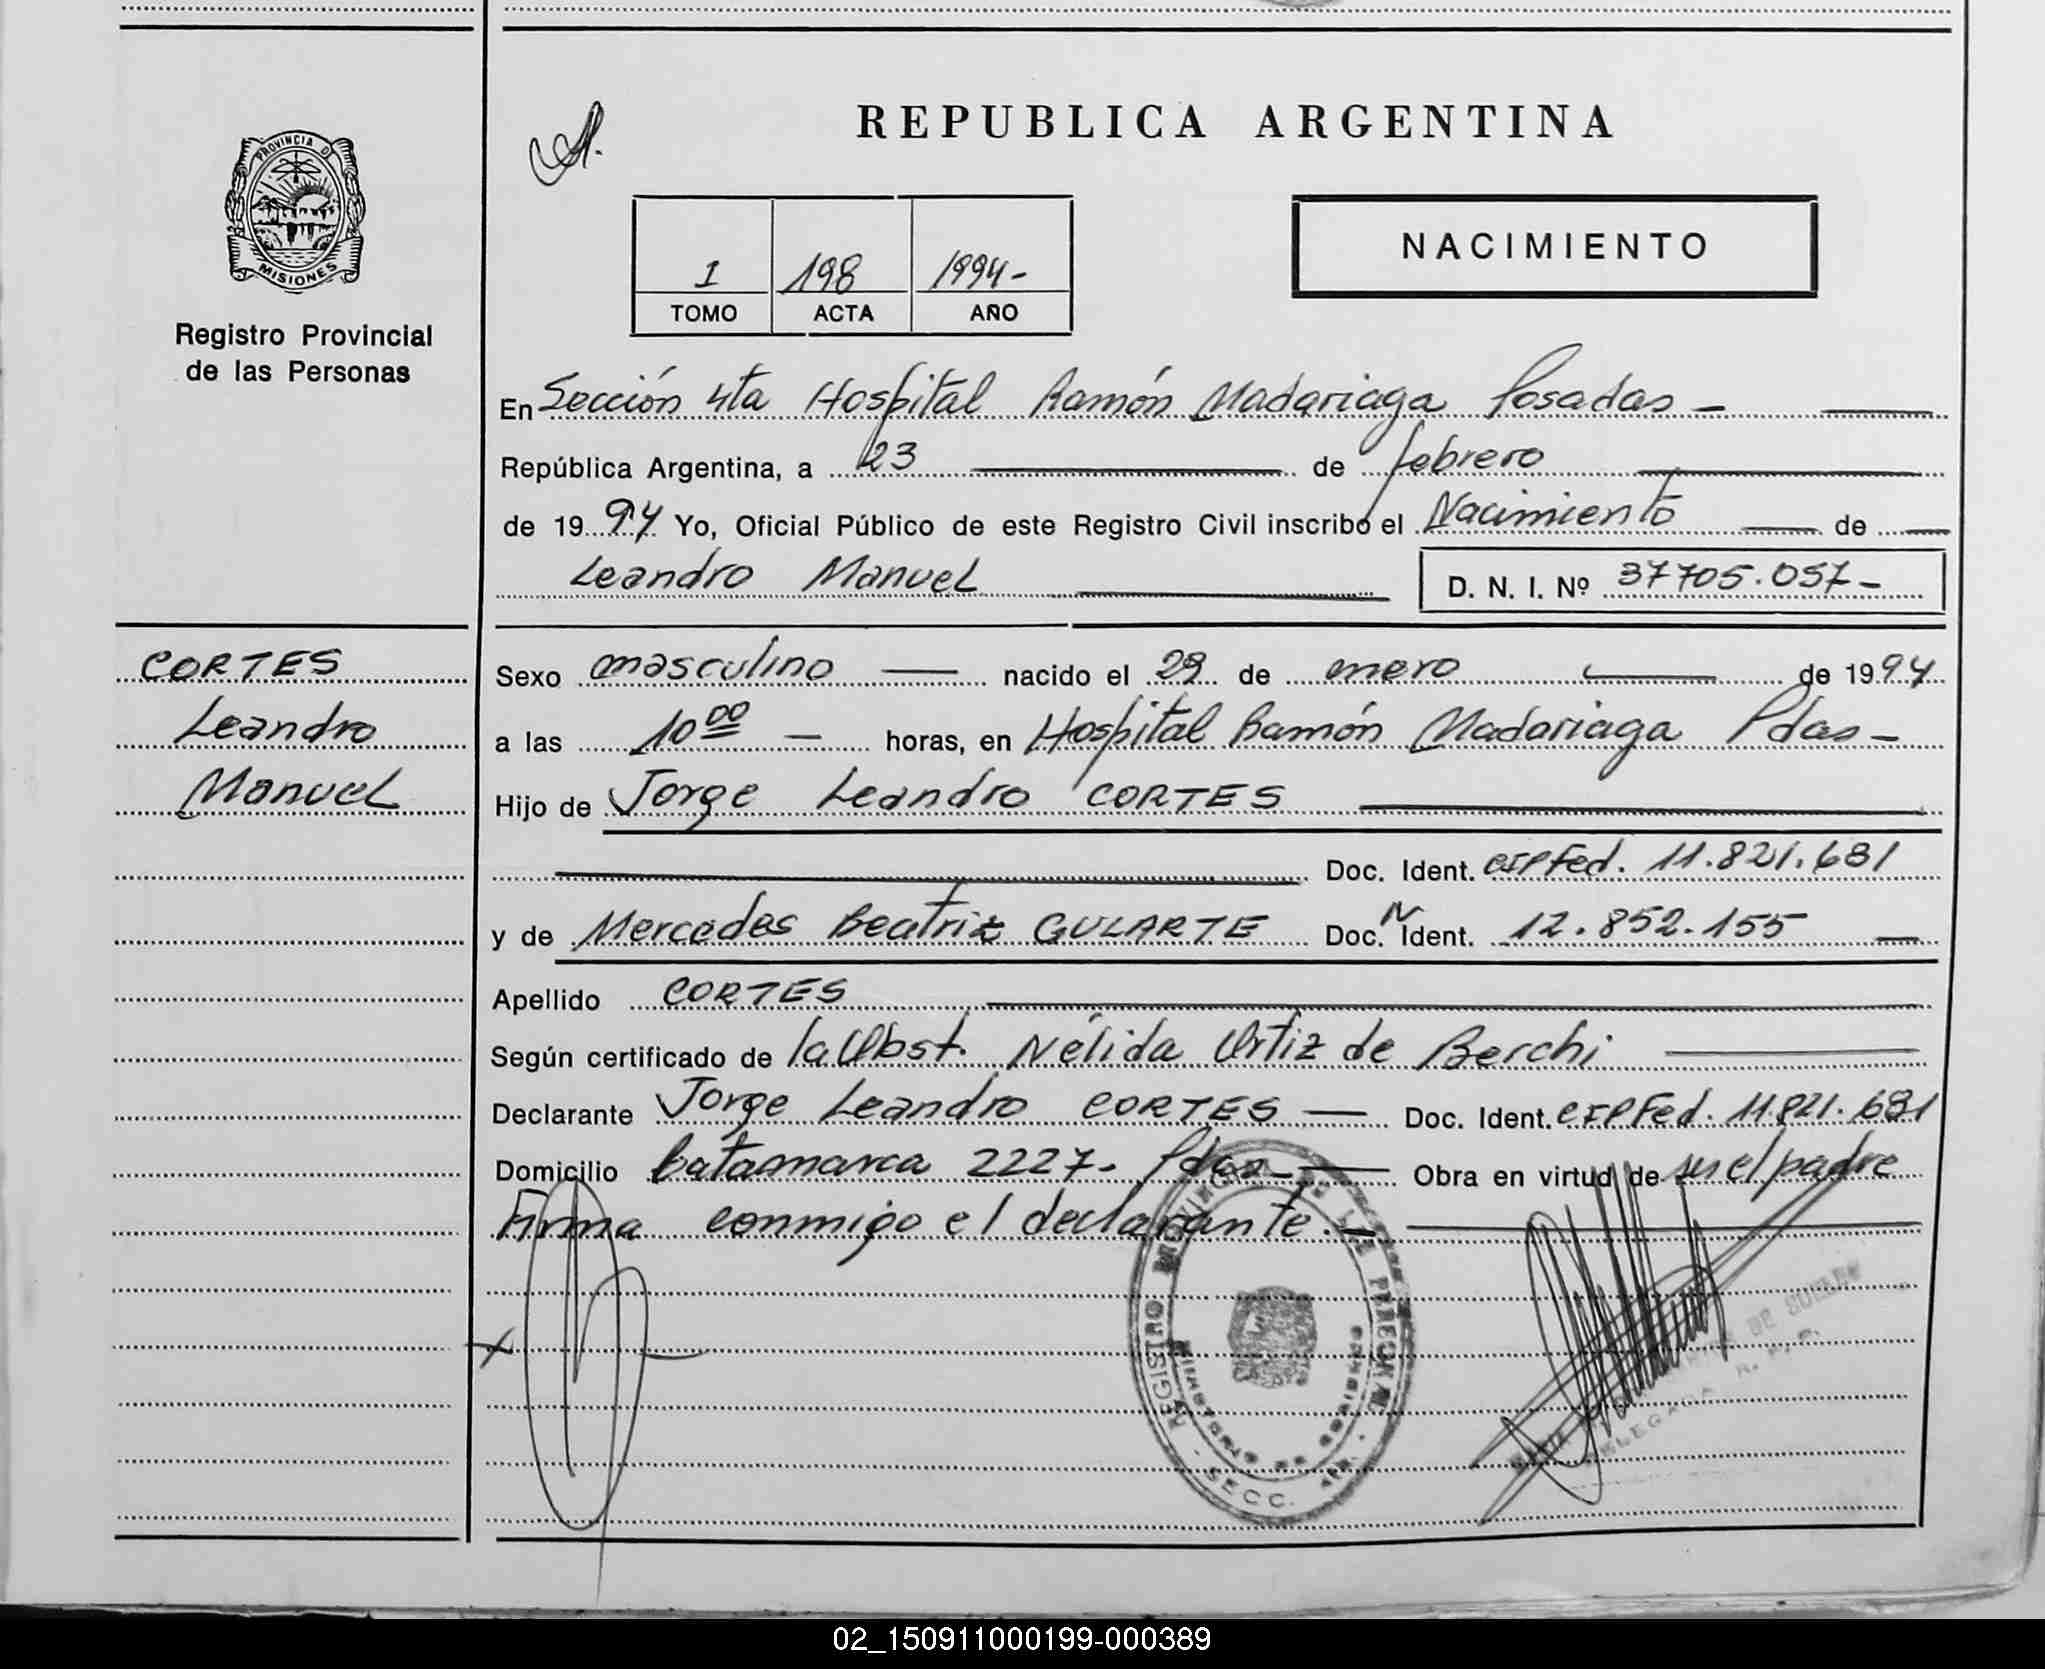 PROVINCIA DE
MISIONES
Registro Provincial
de las Personas
REPUBLICA ARGENTINA
1 198 1994-
TOMO ACTA AÑO
NACIMIENTO
En Sección 4ta Hospital Ramón Madariaga Posadas -
República Argentina, a 23 de febrero
de 1994 Yo, Oficial Público de este Registro Civil inscribo el Nacimiento de
Leandro Manuel D. N. I. Nº 37705.057-
CORTES
Leandro
Manuel
Sexo masculino nacido el 29 de enero de 1994
a las 10 00 - horas, en Hospital Ramón Madariaga Pdas-
Hijo de Jorge Leandro CORTES
Doc. Ident. CIPFed. 11.821.681
y de Mercedes Beatriz GULARTE Doc. N Ident. 12.852.155
Apellido CORTES
Según certificado de la Obst. Nélida Ortiz de Berchi
Declarante Jorge Leandro CORTES Doc. Ident. CIPFed. 11.821.681
Domicilio Catamarca 2227. Pdas- Obra en virtud de ser el padre
Firma conmigo el declarante.-
REGISTRO PROVINCIAL DE LAS PERSONAS
MINISTERIO DE GOBIERNO
SECC. 4ta.
DELEGADA R. P. P.
02_150911000199-000389